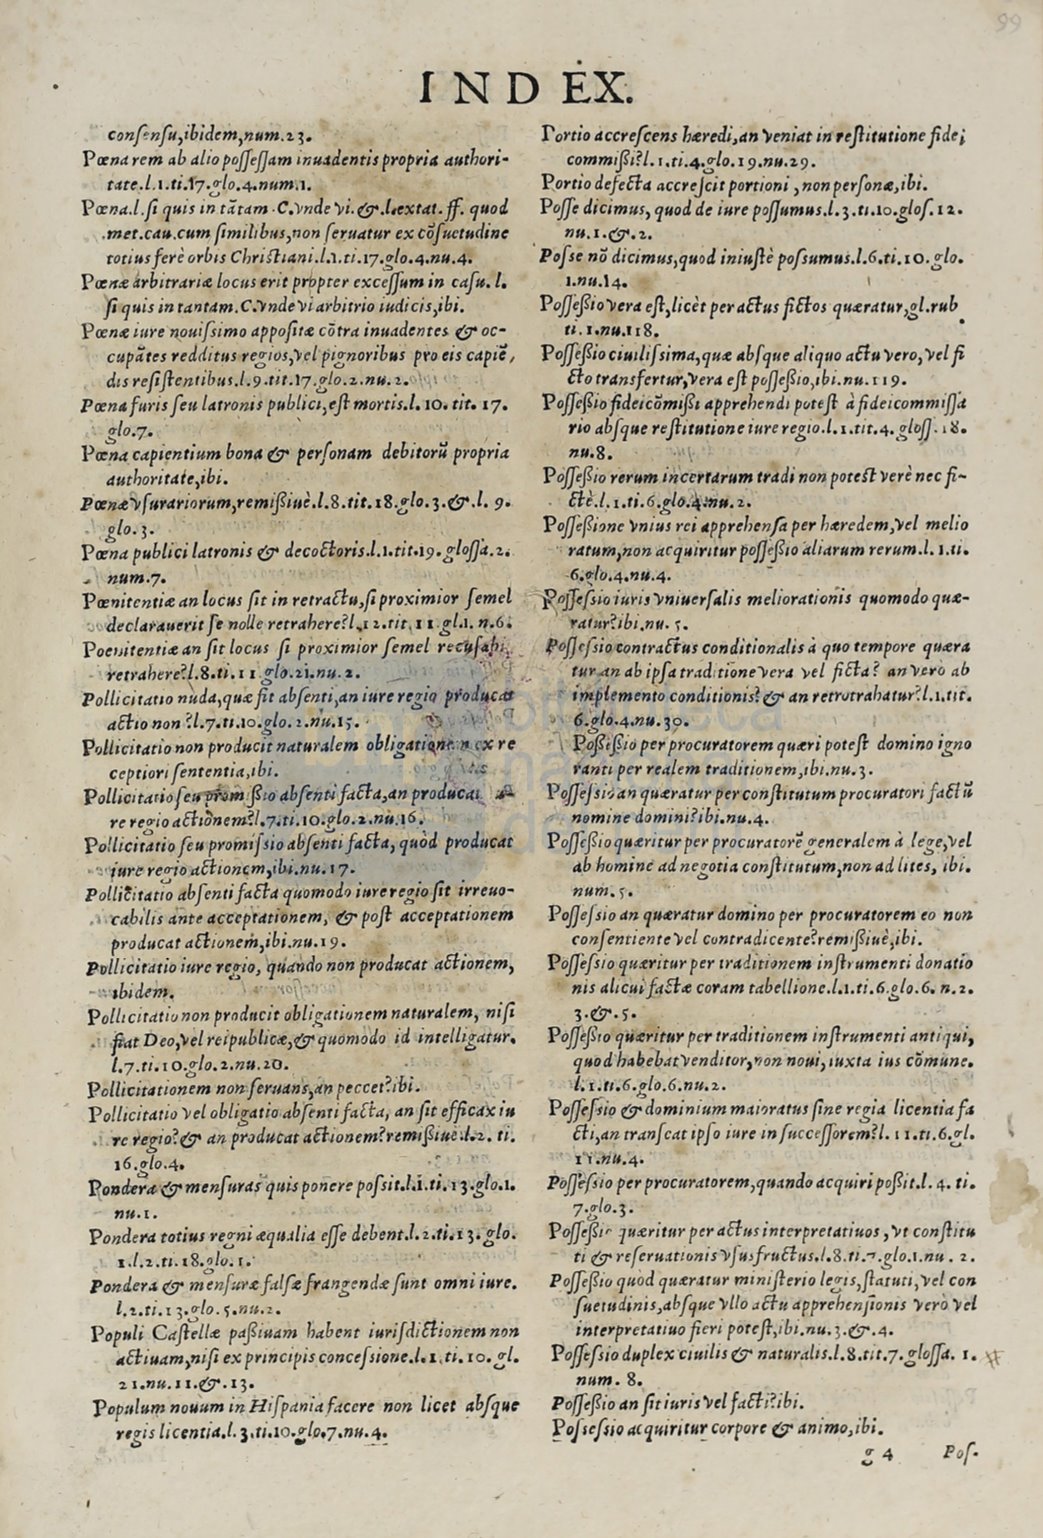 99
INDEX.
consensu, ibidem, num. 23.
Pœna rem ab alio possessam inuadentis propria authori-
tate. l. 1. ti. 17. glo. 4. num. 1.
Pœna. l. si quis in tātam. C. vnde vi. &. l. extat. ff. quod
met. cau. cum similibus, non seruatur ex cōsuetudine
totius ferè orbis Christiani. l. 1. ti. 17. glo. 4. nu. 4.
Pœnæ arbitrariæ locus erit propter excessum in casu. l.
si quis in tantam. C. vnde vi arbitrio iudicis, ibi.
Pœnæ iure nouissimo appositæ cōtra inuadentes & oc-
cupātes redditus regios, vel pignoribus pro eis capiē,
dis resistentibus. l. 9. tit. 17. glo. 2. nu. 2.
Pœna furis seu latronis publici, est mortis. l. 10. tit. 17.
glo. 7.
Pœna capientium bona & personam debitorū propria
authoritate, ibi.
Pœnæ vsurariorum, remissiuè. l. 8. tit. 18. glo. 3. &. l. 9.
glo. 3.
Pœna publici latronis & decoctoris. l. 1. tit. 19. glossa. 2.
num. 7.
Pœnitentiæ an locus sit in retractu, si proximior semel
declarauerit se nolle retrahere? l. 12. tit. 11. gl. 1. n. 6.
Poenitentiæ an sit locus si proximior semel recusabi.
retrahere? l. 8. ti. 11 glo. 21. nu. 2.
Pollicitatio nuda, quæ fit absenti, an iure regio producat
actio non? l. 7. ti. 10. glo. 2. nu. 15.
Pollicitatio non producit naturalem obligationem ex re
ceptiori sententia, ibi.
Pollicitatio seu promissio absenti facta, an producat
re regio actionem? l. 7. ti. 10. glo. 2. nu. 16.
Pollicitatio seu promissio absenti facta, quòd producat
iure regio actionem, ibi. nu. 17.
Pollicitatio absenti facta quomodo iure regio sit irreuo-
cabilis ante acceptationem, & post acceptationem
producat actionem, ibi. nu. 19.
Pollicitatio iure regio, quando non producat actionem,
ibidem.
Pollicitatio non producit obligationem naturalem, nisi
fiat Deo, vel reipublicæ, & quomodo id intelligatur.
l. 7. ti. 10. glo. 2. nu. 20.
Pollicitationem non seruans, an peccet? ibi.
Pollicitatio vel obligatio absenti facta, an sit efficax iu
re regio? & an producat actionem? remissiuè. l. 2. ti.
16. glo. 4.
Pondera & mensuras quis ponere possit. l. 1. ti. 13. glo. 1.
nu. 1.
Pondera totius regni æqualia esse debent. l. 2. ti. 13. glo.
1. l. 2. ti. 18. glo. 1.
Pondera & mensuræ falsæ frangendæ sunt omni iure.
l. 2. ti. 13. glo. 5. nu. 2.
Populi Castellæ passiuam habent iurisdictionem non
actiuam, nisi ex principis concessione. l. 1. ti. 10. gl.
21. nu. 11. &. 13.
Populum nouum in Hispania facere non licet absque
regis licentia. l. 3. ti. 10. glo. 7. nu. 4.
Portio accrescens hæredi, an veniat in restitutione fidei
commissi? l. 1. ti. 4. glo. 19. nu. 29.
Portio defecta accrescit portioni, non personæ, ibi.
Posse dicimus, quod de iure possumus. l. 3. ti. 10. glos. 12.
nu. 1. &. 2.
Posse nō dicimus, quod iniustè possumus. l. 6. ti. 10. glo.
1. nu. 14.
Possessio vera est, licèt per actus fictos quæratur, gl. rub
ti. 1. nu. 118.
Possessio ciuilissima, quæ absque aliquo actu vero, vel fi
cto transfertur, vera est possessio, ibi. nu. 119.
Possessio fideicōmissi apprehendi potest à fideicommissa
rio absque restitutione iure regio. l. 1. tit. 4. gloss. 18.
nu. 8.
Possessio rerum incertarum tradi non potest verè nec fi-
ctè. l. 1. ti. 6. glo. 4. nu. 2.
Possessione vnius rei apprehensa per hæredem, vel melio
ratum, non acquiritur possessio aliarum rerum. l. 1. ti.
6. glo. 4. nu. 4.
Possessio iuris vniuersalis meliorationis quomodo quæ-
ratur? ibi. nu. 5.
Possessio contractus conditionalis à quo tempore quæra
tur an ab ipsa traditione vera vel ficta? an verò ab
implemento conditionis? & an retrotrahatur? l. 1. tit.
6. glo. 4. nu. 30.
Possessio per procuratorem quæri potest domino igno
ranti per realem traditionem, ibi. nu. 3.
Possessio an quæratur per constitutum procuratori factū
nomine domini? ibi. nu. 4.
Possessio quæritur per procuratorē generalem à lege, vel
ab homine ad negotia constitutum, non ad lites, ibi.
num. 5.
Possessio an quæratur domino per procuratorem eo non
consentiente vel contradicente? remissiuè, ibi.
Possessio quæritur per traditionem instrumenti donatio
nis alicui factæ coram tabellione. l. 1. ti. 6. glo. 6. n. 2.
3. &. 5.
Possessio quæritur per traditionem instrumenti antiqui,
quod habebat venditor, non noui, iuxta ius cōmune.
l. 1. ti. 6. glo. 6. nu. 2.
Possessio & dominium maioratus sine regia licentia fa
cti, an transeat ipso iure in successorem? l. 11. ti. 6. gl.
11. nu. 4.
Possessio per procuratorem, quando acquiri possit. l. 4. ti.
7. glo. 3.
Possessio quæritur per actus interpretatiuos, vt constitu
ti & reseruationis vsusfructus. l. 8. ti. 7. glo. 1. nu. 2.
Possessio quòd quæratur ministerio legis, statuti, vel con
suetudinis, absque vllo actu apprehensionis verò vel
interpretatiuo fieri potest, ibi. nu. 3. &. 4.
Possessio duplex ciuilis & naturalis. l. 8. tit. 7. glossa. 1.
num. 8.
Possessio an sit iuris vel facti? ibi.
Possessio acquiritur corpore & animo, ibi.
g 4 Pos.